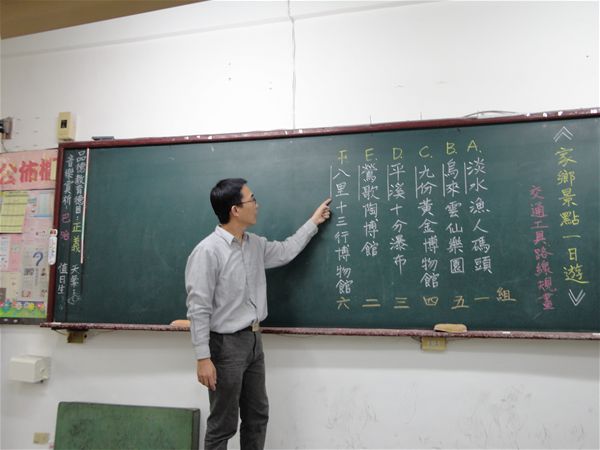 《家鄉景點一日遊》
交通工具路線規畫
A.淡水漁人碼頭 一組
B.烏來雲仙樂園 五
C.九份黃金博物館 四
D.平溪十分瀑布 三
E.鶯歌陶博館 二
F.八里十三行博物館 六
品德教育德目:正義
音樂賞析:巴哈
值日生:
公佈欄